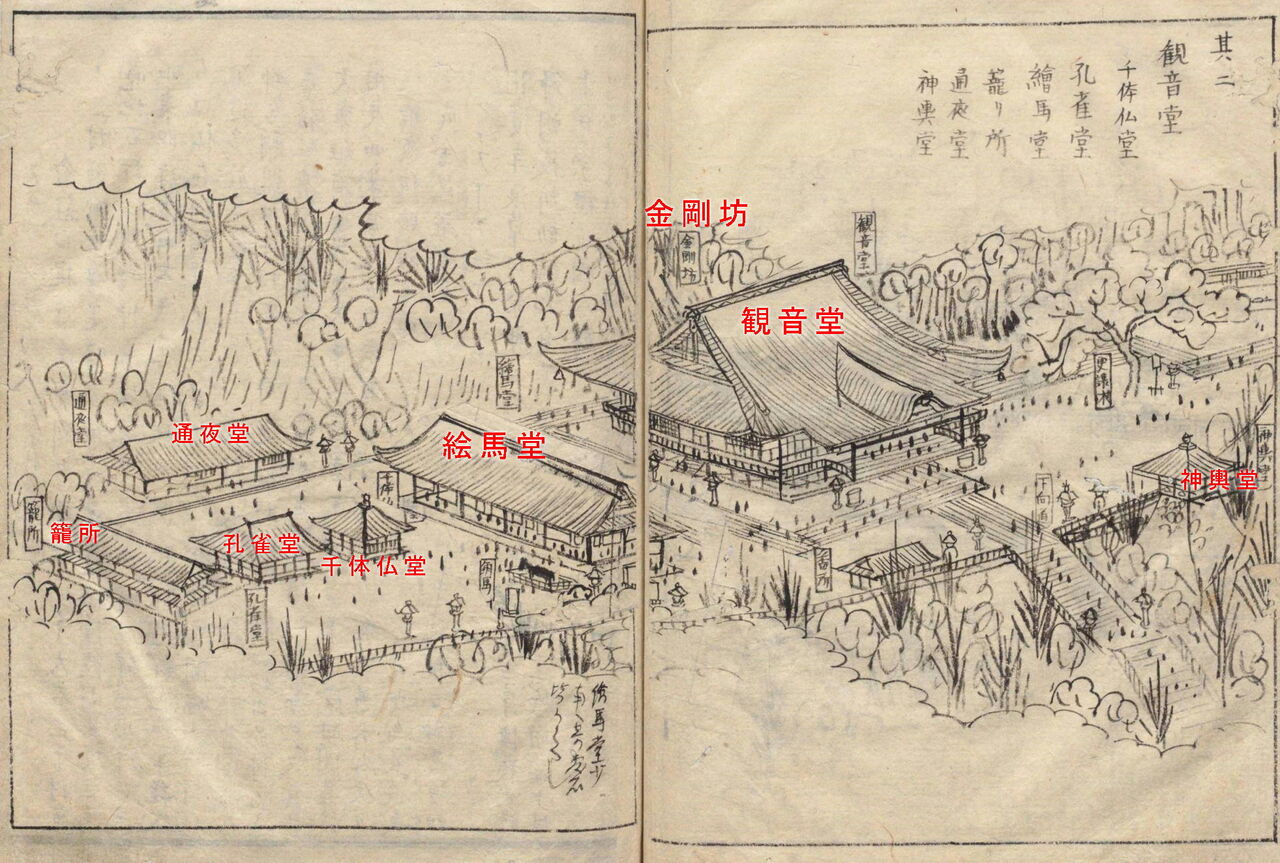 其二
観音堂
千体仏堂
孔雀堂
繪馬堂
籠り所
通夜堂
神輿堂
金剛坊
金剛坊
観音堂
観音堂
神輿堂
神輿堂
下向道
繪馬堂
絵馬堂
通夜堂
通夜堂
籠所
籠所
孔雀堂
孔雀堂
千体仏堂